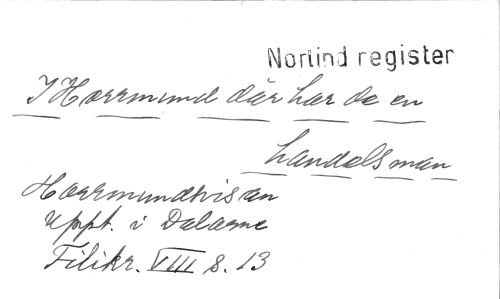 Norlind register
I Horrmund där har de en
handelsman
Horrmundvisan
Uppt. i Dalarne
Filikr. VIII s. 13